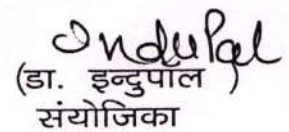 Indu Pal
(डा. इन्दुपाल )
संयोजिका